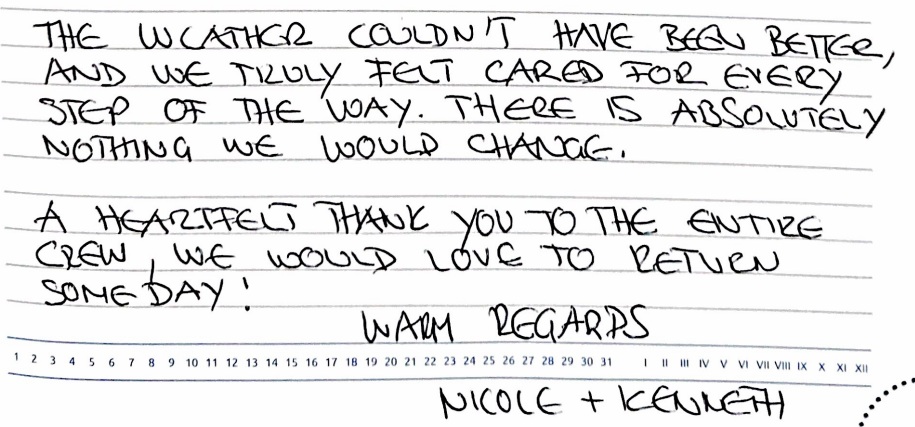 THE WEATHER COULDN'T HAVE BEEN BETTER,
AND WE TRULY FELT CARED FOR EVERY
STEP OF THE WAY. THERE IS ABSOLUTELY
NOTHING WE WOULD CHANGE.
A HEARTFELT THANK YOU TO THE ENTIRE
CREW, WE WOULD LOVE TO RETURN
SOMEDAY!
WARM REGARDS
1 2 3 4 5 6 7 8 9 10 11 12 13 14 15 16 17 18 19 20 21 22 23 24 25 26 27 28 29 30 31 I II III IV V VI VII VIII IX X XI XII
NICOLE + KENNETH